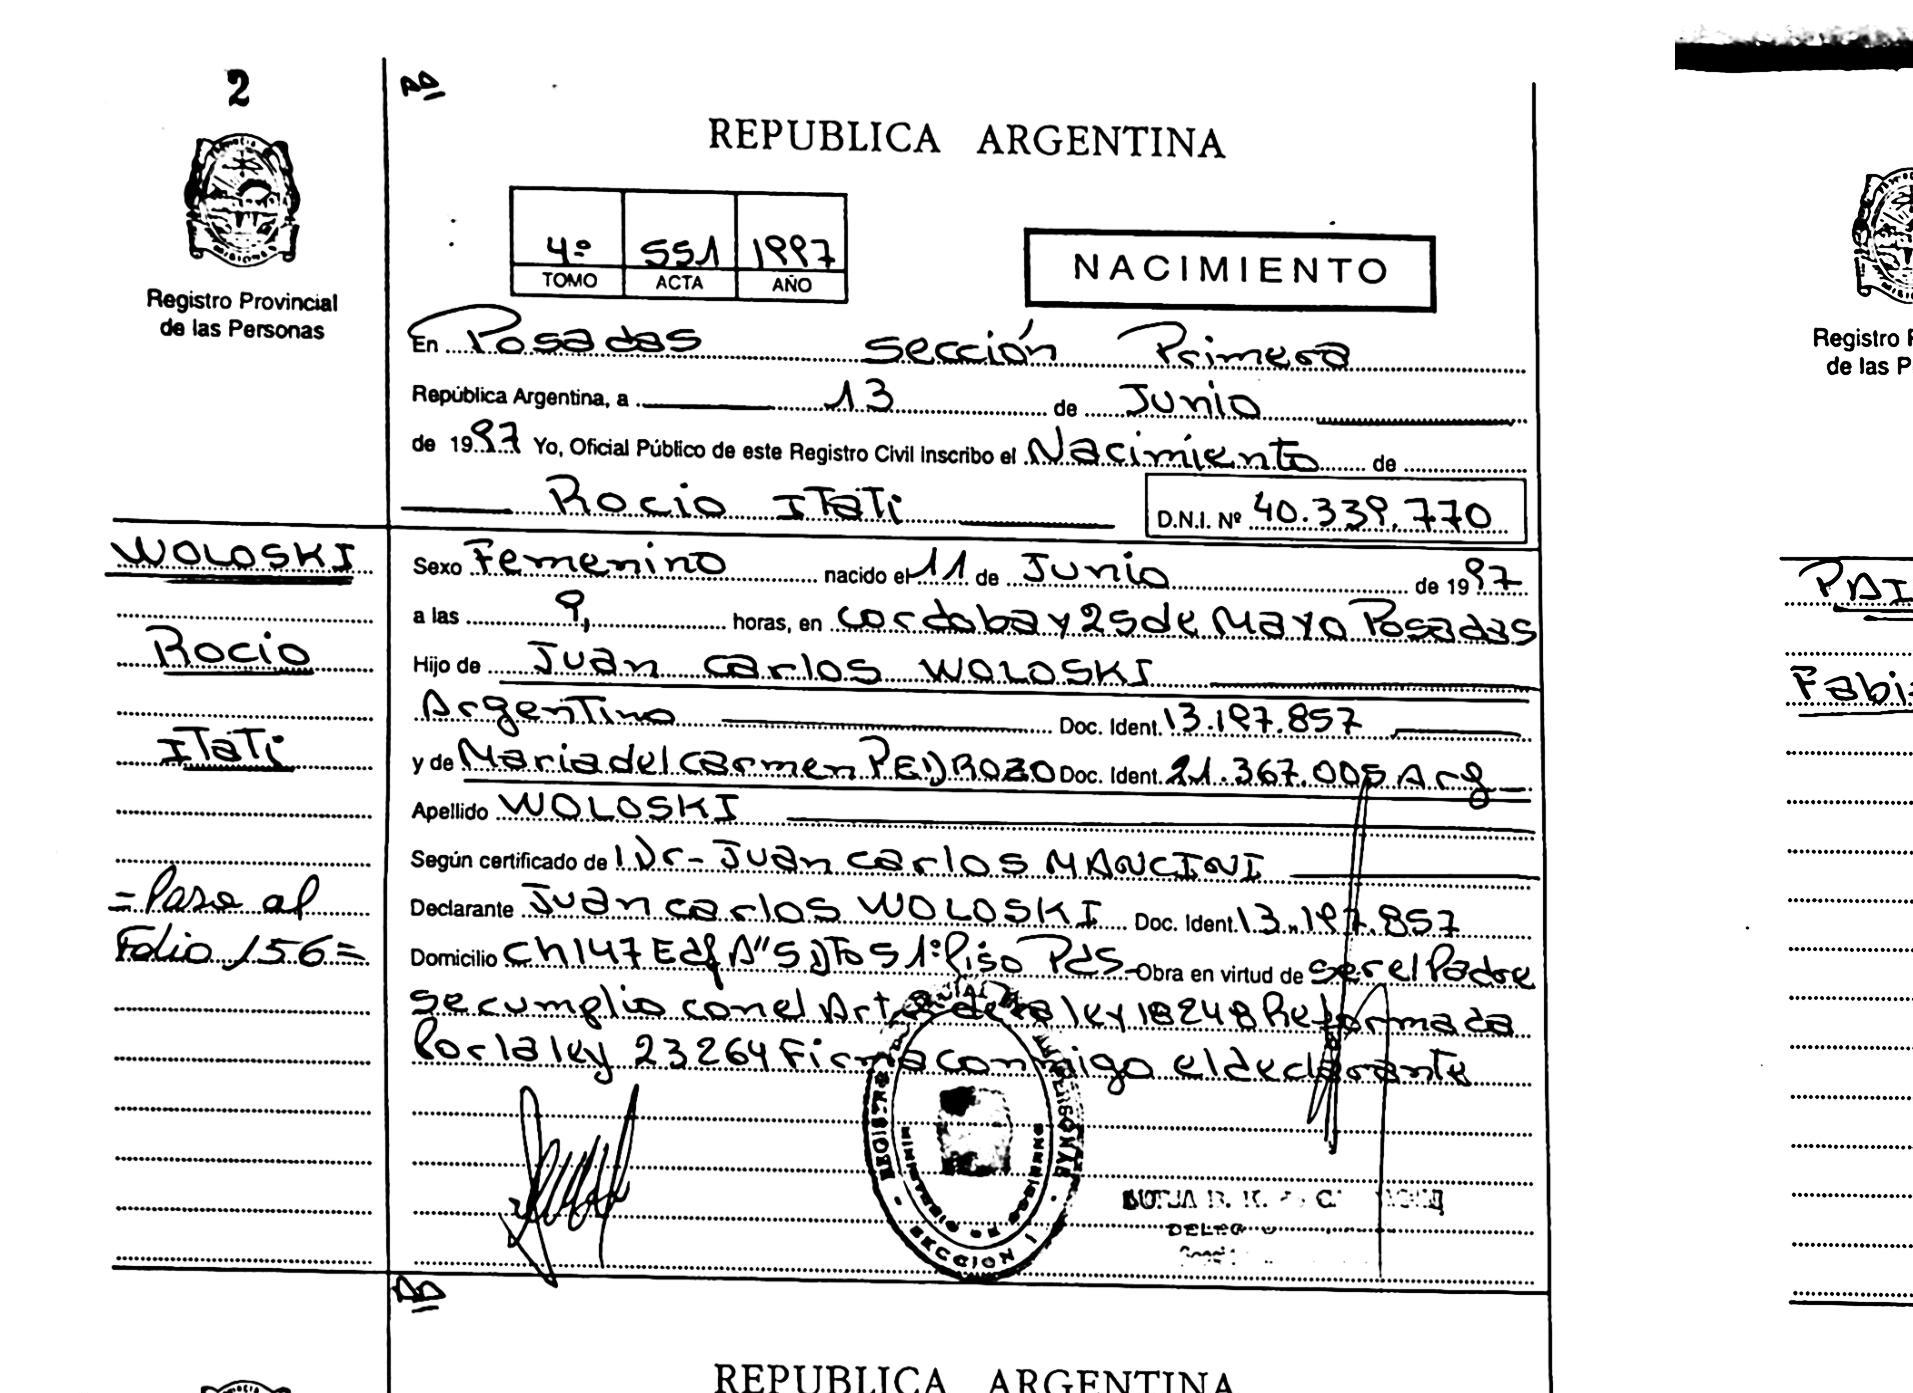 2
REPUBLICA ARGENTINA
4º 551 1997
TOMO ACTA AÑO
NACIMIENTO
Registro Provincial
de las Personas
En Posadas sección Primera
República Argentina, a 13 de Junio
de 1997 Yo, Oficial Público de este Registro Civil inscribo el Nacimiento de
Rocio ITaTi D.N.I. Nº 40.339.770
WOLOSKI
Rocio
ITaTi
=Pase al
Folio 156=
Sexo Femenino nacido el 11 de Junio de 1997
a las 9, horas, en cordoba y 25 de Mayo Posadas
Hijo de Juan carlos WOLOSKI
Argentino Doc. Ident. 13.197.857
y de Maria del carmen PEDROZO Doc. Ident. 21.367.005 Arg
Apellido WOLOSKI
Según certificado de l Dr- Juan carlos MANCINI
Declarante Juan carlos WOLOSKI Doc. Ident. 13.197.857
Domicilio ch 147 Edf A"5 DTo 5 1º Piso Pds- Obra en virtud de ser el Padre
se cumplio con el Art de la ley 18248 Reformada
Por la ley 23264 Firma conmigo el declarante
MINISTERIO DE GOBIERNO
SECCION 1
REPUBLICA ARGENTINA
Registro
de las P
PAI
Fabi